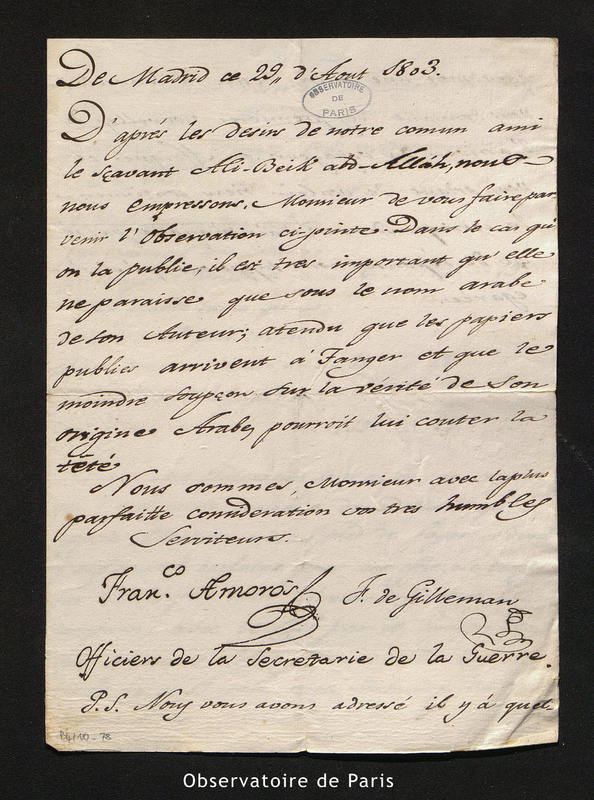 De Madrid ce 29,, d'Aout 1803.
OBSERVATOIRE
DE
PARIS
D'aprés les desirs de notre comun ami
le sçavant Ali-Beik abd-Alláh, nous
nous empressons, Monsieur de vous faire par
venir l'Observation ci-jointe. Dans le cas qu'
on la publie, il est tres important qu'elle
ne paraisse que sous le nom arabe
de son Auteur; atendu que les papiers
publics arrivent á Tanger et que le
moindre soupçon sur la vérité de son
origine Arabe, pourroit lui couter la
tété
Nous sommes, Monsieur avec la plus
parfaitte consideration vos tres humbles
Serviteurs.
Fran.co Amorós F. de Gilleman
Officiers de la Secretarie de la Guerre.
P.S. Nous vous avons adressé il y á quel-
Observatoire de Paris